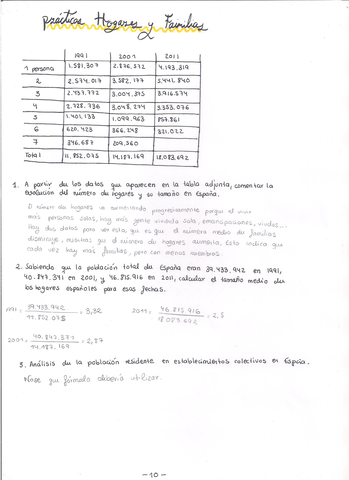 prácticas Hogares y Familias
1991 2001 2011
1 persona 1.581.307 2.876.572 4.193.319
2 2.574.017 3.582.177 5.441.840
3 2.437.772 3.004.375 3.916.574
4 2.728.736 3.048.274 3.353.076
5 1.401.133 1.099.963 857.861
6 620.423 366.248 321.022
7 346.687 209.560
Total 11.852.075 14.187.169 18.083.692
1. A partir de los datos que aparecen en la tabla adjunta, comentar la
evolución del número de hogares y su tamaño en España.
El número de hogares va aumentando progresivamente porque al vivir
más personas solas, hay más gente viviendo sola, emancipaciones, viudas...
Hay dos datos para ver esto, ya es que el número medio de familias
disminuye, mientras que el número de hogares aumenta. Esto indica que
cada vez hay más familias, pero con menos miembros.
2. Sabiendo que la población total de España eran 39.433.942 en 1991,
40.847.371 en 2001, y 46.815.916 en 2011, calcular el tamaño medio de
los hogares españoles para esas fechas.
1991 = 39.433.942 / 11.852.075 = 3,32 2011 = 46.815.916 / 18.083.692 = 2,5
2001 = 40.847.371 / 14.187.169 = 2,87
3. Análisis de la población residente en establecimientos colectivos en España.
Nose que fórmula debería utilizar.
-10-